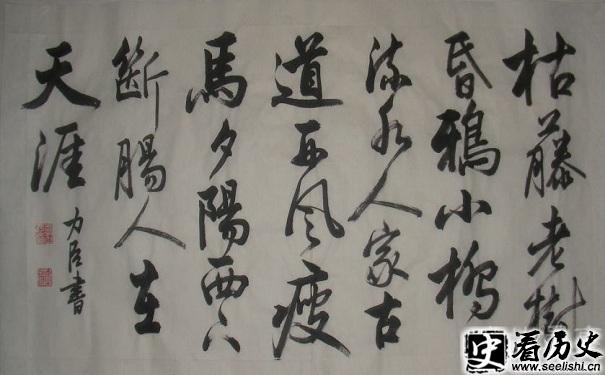 枯藤老樹
昏鴉小橋
流水人家古
道西風瘦
馬夕陽西下
斷腸人在
天涯
力臣書
史
看历史
www.seelishi.cn